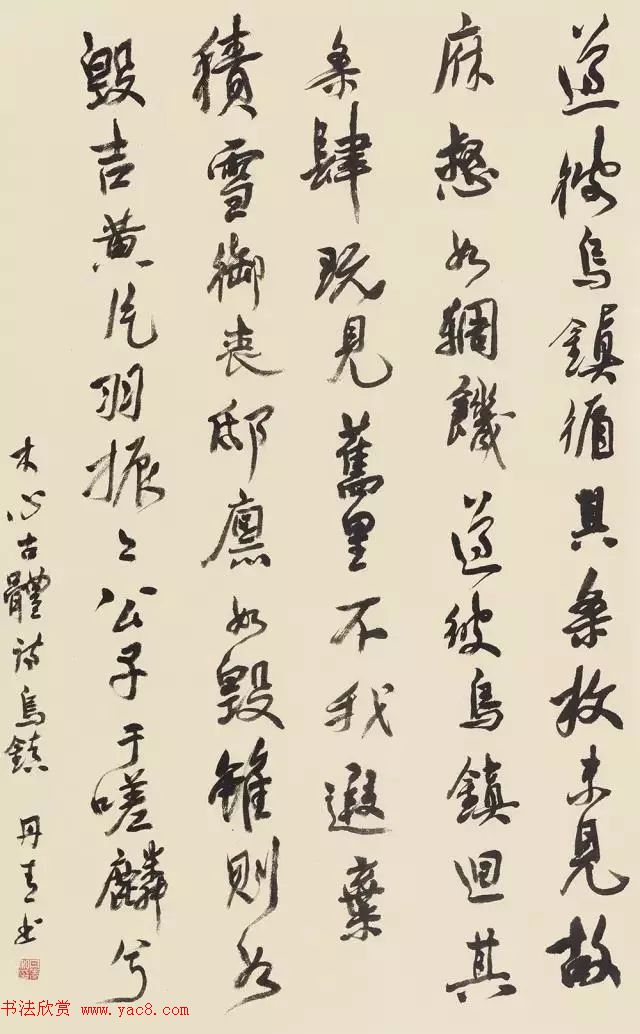 遵彼烏鎮循其條枚未見故
麻惄如輖饑遵彼烏鎮迴其
條肄既見舊里不我遐棄
積雪御喪邸廪如毀雖則如
毀吉黄片羽振々公子于嗟麟兮
木心古體诗烏鎮 丹青书
书法欣赏 www.yac8.com